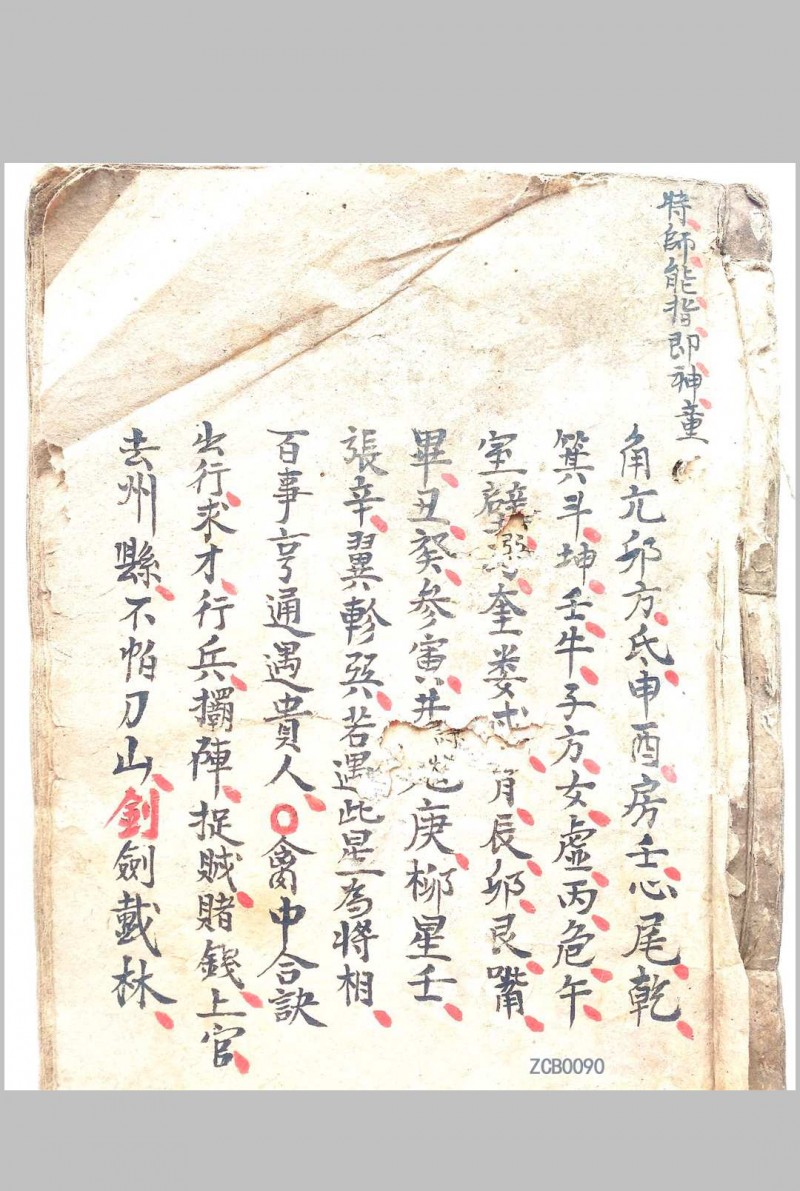 時師能指即神童
角亢卯方氐申酉房壬心尾乾
箕斗坤壬牛子方女虛丙危午
室壁奎娄戌胃辰卯艮嘴
畢丑癸參寅井庚柳星壬
張辛翼軫巽若遇此星為將相
百事亨通遇貴人〇禽中合訣
出行求才行兵擺陣捉贼賭錢上官
去州縣不怕刀山劍劍戴林
ZCB0090